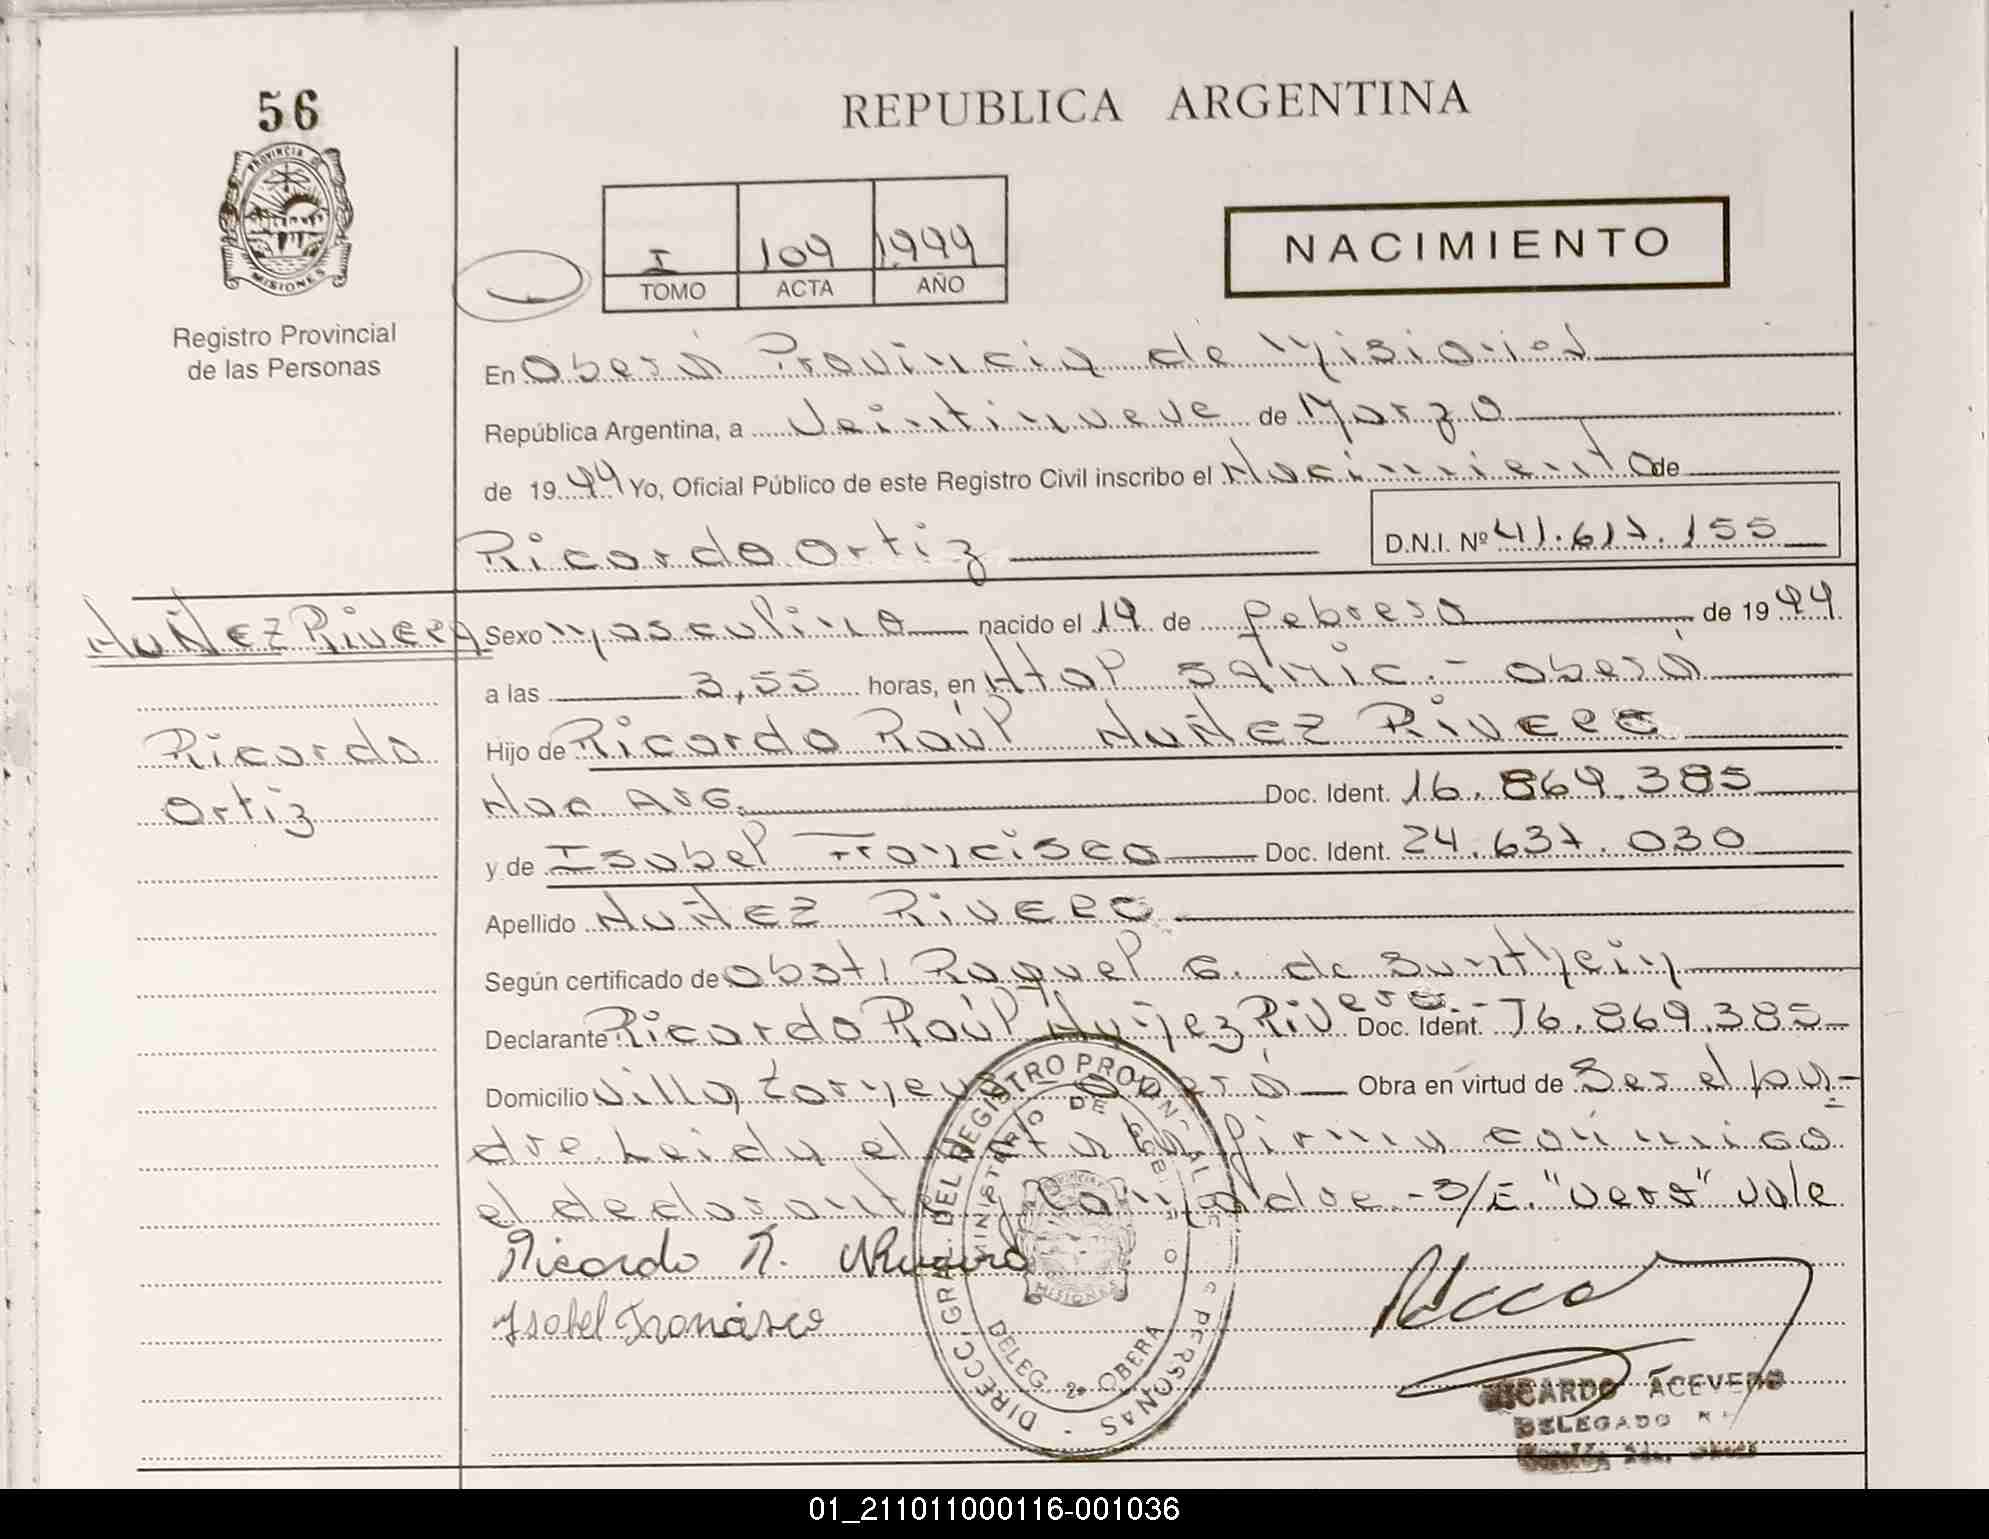 56
REPUBLICA ARGENTINA
PROVINCIA DE
MISIONES
Registro Provincial
de las Personas
I 109 1999
TOMO ACTA AÑO
NACIMIENTO
En Oberá Provincia de Misiones
República Argentina, a Veintinueve de Marzo
de 1999 Yo, Oficial Público de este Registro Civil inscribo el Nacimiento de
Ricardo Ortiz D.N.I. Nº 41.617.155
NuÑEz RivERA Sexo Masculino nacido el 19 de febrero de 1999
a las 3,55 horas, en Htal Samic.- Oberá
Hijo de Ricardo Raúl NuÑEz RivERo
Nac ArG. Doc. Ident. 16.869.385
y de Isabel Francisco Doc. Ident. 24.637.030
Apellido NuÑEz RivERo
Según certificado de obst, Raquel G. de Sunthein
Declarante Ricardo Raúl Nuñez Rivero.- Doc. Ident. 16.869.385
Domicilio Villa Oberá Obra en virtud de Ser el pa-
dre. Leida el acta la firman conmigo
el declarante y la madre.- S/E. "vero" vale
Ricardo R. NRivero
Isabel Francisco
Ricardo
Ortiz
DIRECC. GRAL. DEL REGISTRO PROVINCIAL DE PERSONAS
MINISTERIO DE GOBIERNO
PROVINCIA
MISIONES
DELEG. 2ª OBERA
RICARDO ACEVEDO
DELEGADO
01_211011000116-001036